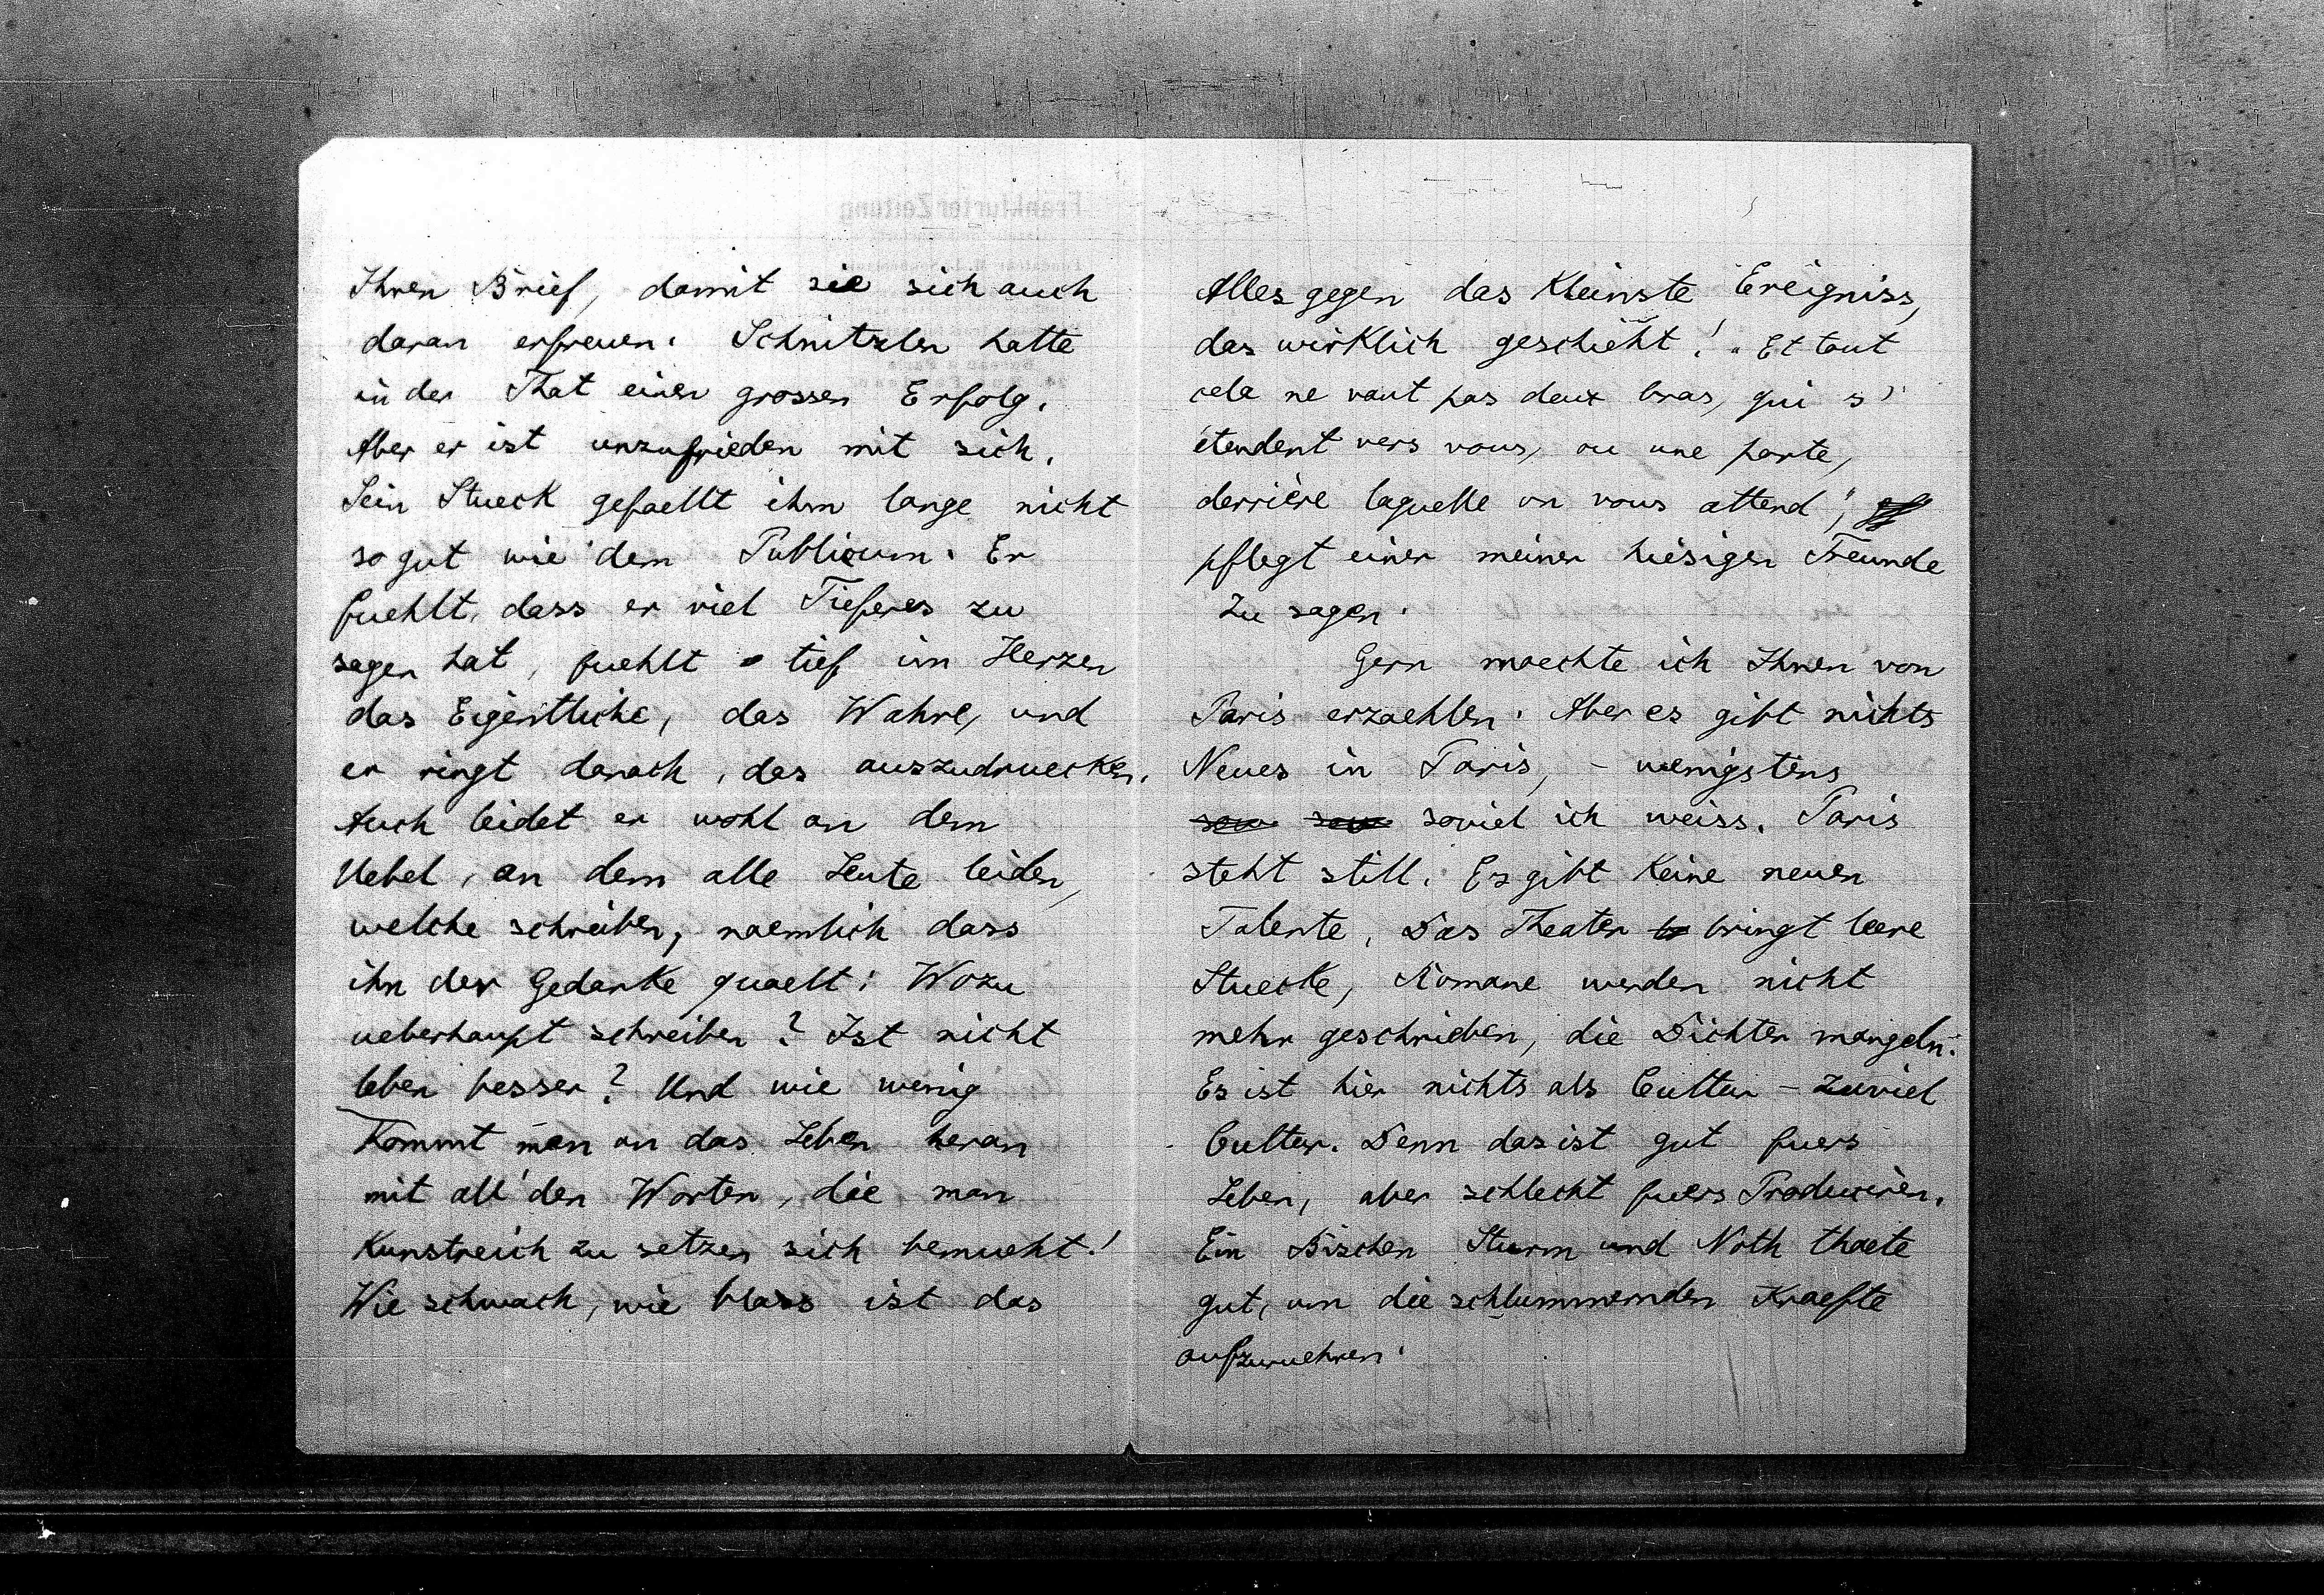 Ihren Brief, damit sie sich auch
daran erfreuen. Schnitzler hatte
in der That einen grossen Erfolg.
Aber er ist unzufrieden mit sich.
Sein Stueck gefaellt ihm lange nicht
so gut wie dem Publicum. Er
fuehlt, dass er viel Tieferes zu
sagen hat, fuehlt tief im Herzen
das Eigentliche, das Wahre, und
er ringt danach, das auszudruecken.
Auch leidet er wohl an dem
Uebel, an dem alle Leute leiden,
welche schreiben, naemlich dass
ihn der Gedanke quaelt: Wozu
ueberhaupt schreiben? Ist nicht
leben besser? Und wie wenig
kommt man an das Leben heran
mit all' den Worten, die man
kunstreich zu setzen sich bemueht!
Wie schwach, wie blass ist das
Alles gegen das kleinste Ereigniss,
das wirklich geschieht! „Et tout
cela ne vaut pas deux bras, qui s'
étendent vers vous, ou une porte,
derrière laquelle on vous attend",
pflegt einer meiner hiesigen Freunde
zu sagen.
Gern moechte ich Ihnen von
Paris erzaehlen. Aber es gibt nichts
Neues in Paris, – wenigstens
sow sow soviel ich weiss. Paris
steht still. Es gibt keine neuen
Talente. Das Theater br bringt leere
Stuecke, Romane werden nicht
mehr geschrieben, die Dichter mangeln.
Es ist hier nichts als Cultur – zuviel
Cultur. Denn das ist gut fuers
Leben, aber schlecht fuers Produciren.
Ein Bischen Sturm und Noth thaete
gut, um die schlummernden Kraefte
aufzuruehren.
FrankfurterZeitung